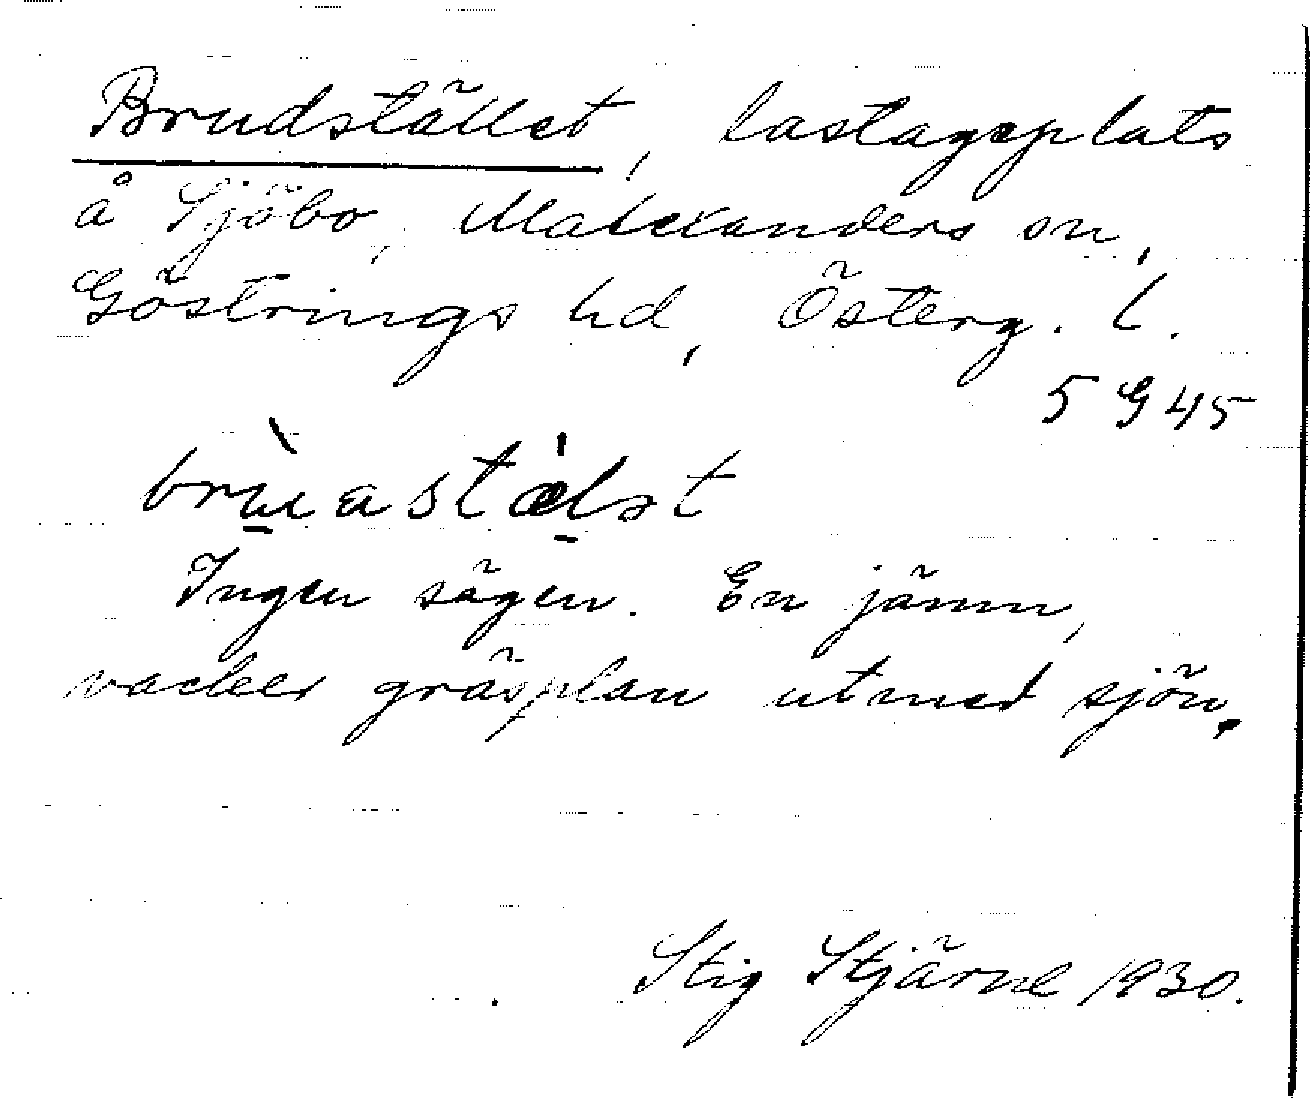 Brudstället, lastageplats
å Sjöbo, Malexanders sn,
Göstrings hd, Österg. l.
5 G 45
brùastæ̀lət
Ingen sägen. En jämn,
vacker gräsplan utmed sjön.
Stig Stjärne 1930.